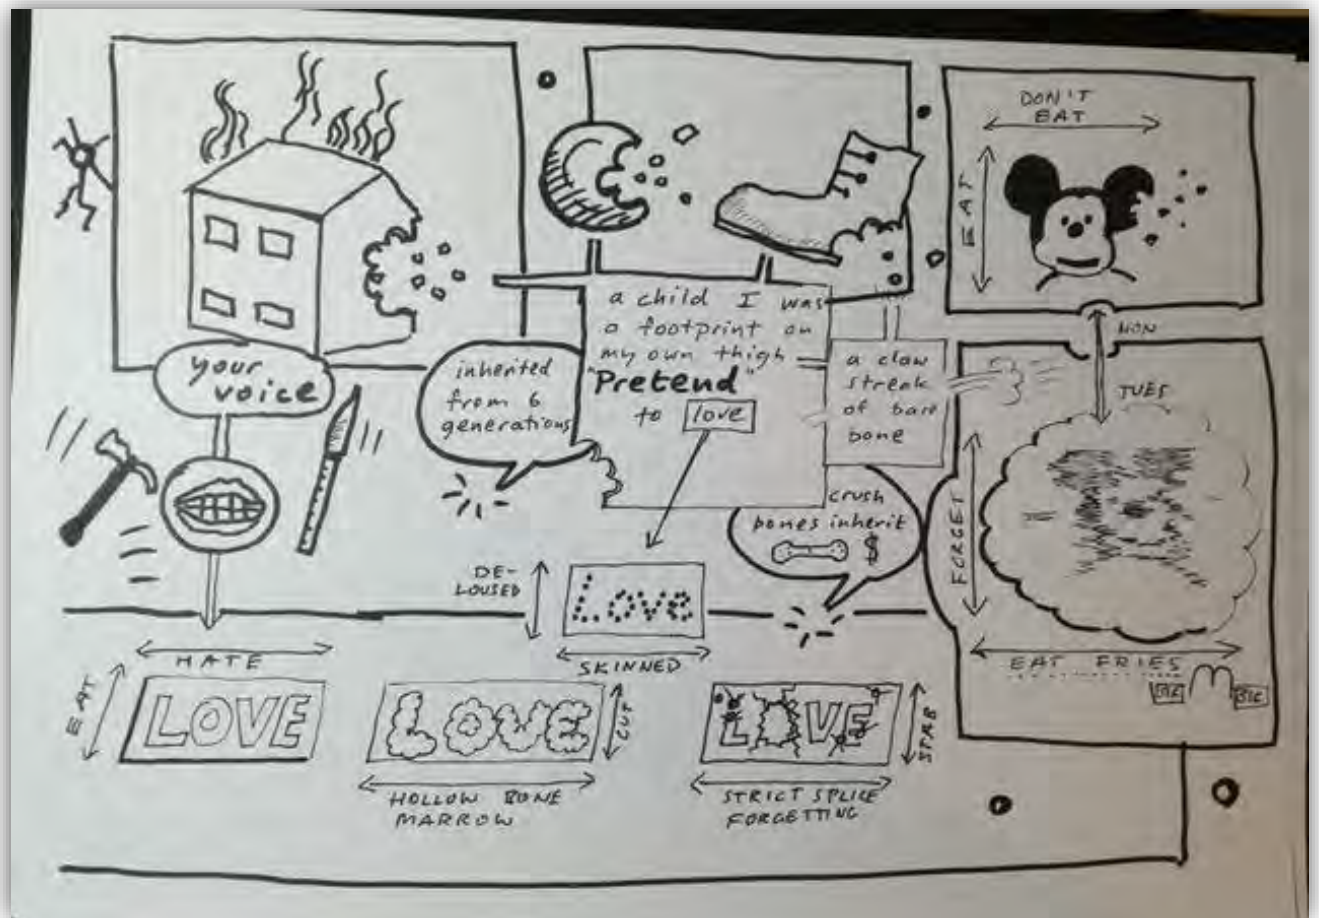 DON'T
EAT
EAT
your
voice
inherited
from 6
generations
a child I was
a footprint on
my own thigh
"Pretend"
to love
a claw
streak
of bare
bone
crush
bones inherit
$
MON
TUES
FORGET
EAT FRIES
DE-
LOUSED
Love
SKINNED
HATE
EAT
LOVE
LOVE
CUT
HOLLOW BONE
MARROW
LOVE
STAB
STRICT SPLICE
FORGETTING